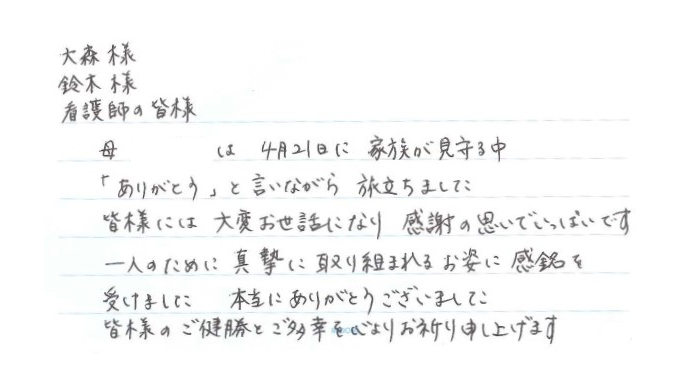 大森様
鈴木様
看護師の皆様
母 は 4月21日に 家族が見守る中
「ありがとう」と言いながら 旅立ちました
皆様には 大変お世話になり 感謝の思いでいっぱいです
一人のために 真摯に取り組まれるお姿に 感銘を
受けました 本当にありがとうございました
皆様のご健勝とご多幸を心よりお祈り申し上げます